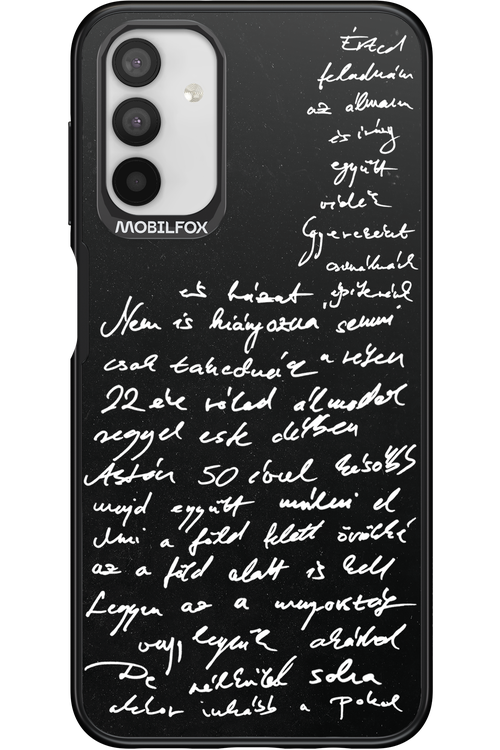 MOBILFOX
Érted
feladnám
az álmom
és így
együtt
vidék
Gyereket
csinálnék
és házat építenék
Nem is hiányozna semmi
csak
22 éve rólad álmodok
reggel este délben
Aztán 50 évvel később
majd együtt múlni el
Ami a föld felett örökké
az a föld alatt is kell
Legyen az a mennyország
vagy legyünk akárhol
De nélküled soha
akkor inkább a pokol